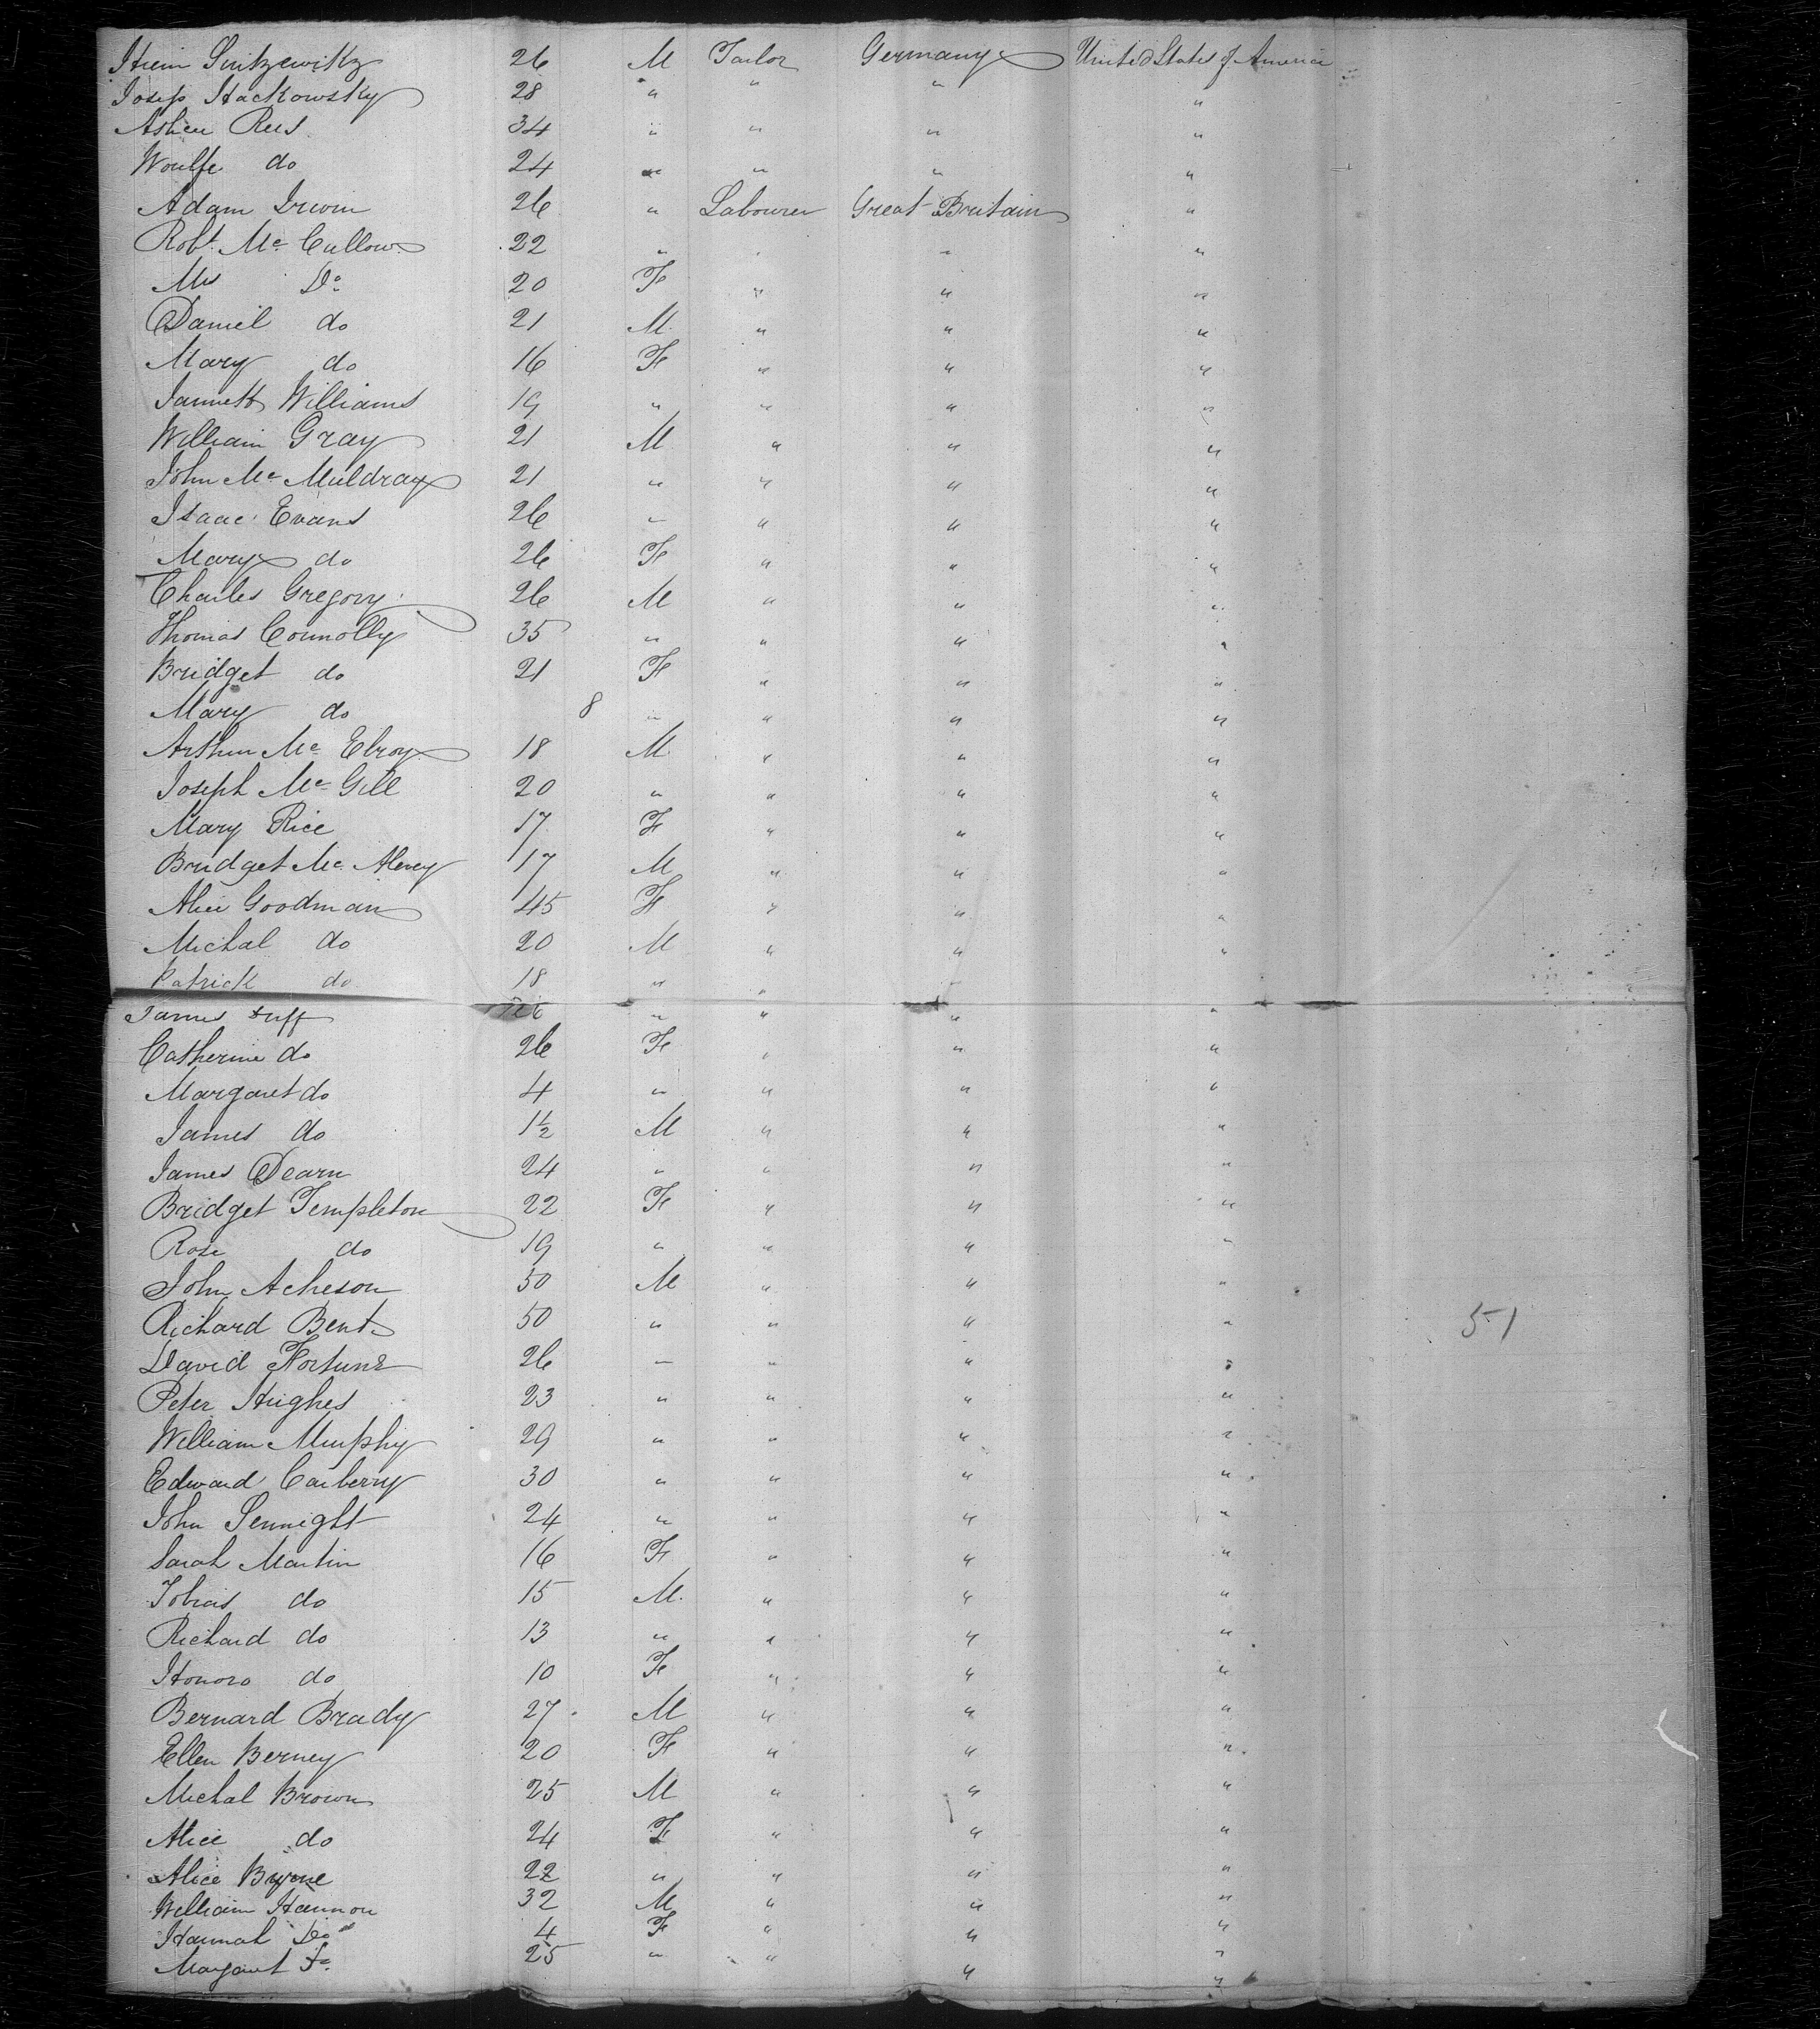 26 M Tailor Germany United States of America
Josep Hackowsky 28 " " " "
Rees 34 " " " "
Woulfe do 24 " " " "
Adam Irwin 26 " Labourer Great Britain "
Robt. Mc Cullow 22 " " " "
Mrs Do 20 F " " "
Daniel do 21 M " " "
Mary do 16 F " " "
Jannett Williams 19 " " " "
William Gray 21 M " " "
John Mc Muldray 21 " " " "
Isaac Evans 26 " " " "
Mary do 26 F " " "
Charles Gregory 26 M " " "
Thomas Connolly 35 " " " "
Bridget do 21 F " " "
Mary do 8 " " " "
Arthur Mc Elroy 18 M " " "
Joseph Mc Gill 20 " " " "
Mary Rice 17 F " " "
Bridget Mc Alevey 17 M " " "
Alice Goodman 45 F " " "
Michal do 20 M " " "
Patrick do 18 " " " "
James Duff " " " "
Catherine do 26 F " " "
Margaret do 4 " " " "
James do 1½ M " " "
James Dearn 24 " " " "
Bridget Templeton 22 F " " "
Rose do 19 " " " "
John Acheson 50 M " " "
Richard Bent 50 " " " " 51
David Fortune 26 " " " "
Peter Hughes 23 " " " "
William Murphy 29 " " " "
Edward Carberry 30 " " " "
John Sennight 24 " " " "
Sarah Martin 16 F " " "
Tobias do 15 M. " " "
Richard do 13 " " " "
Honora do 10 F " " "
Bernard Brady 27 M " " "
Ellen Berney 20 F " " "
Michal Brown 25 M " " "
Alice do 24 F " " "
Alice Byrne 22 " " " "
William Hannon 32 M " " "
Hannah Do 4 F " " "
Margaret Do 25 " " " "